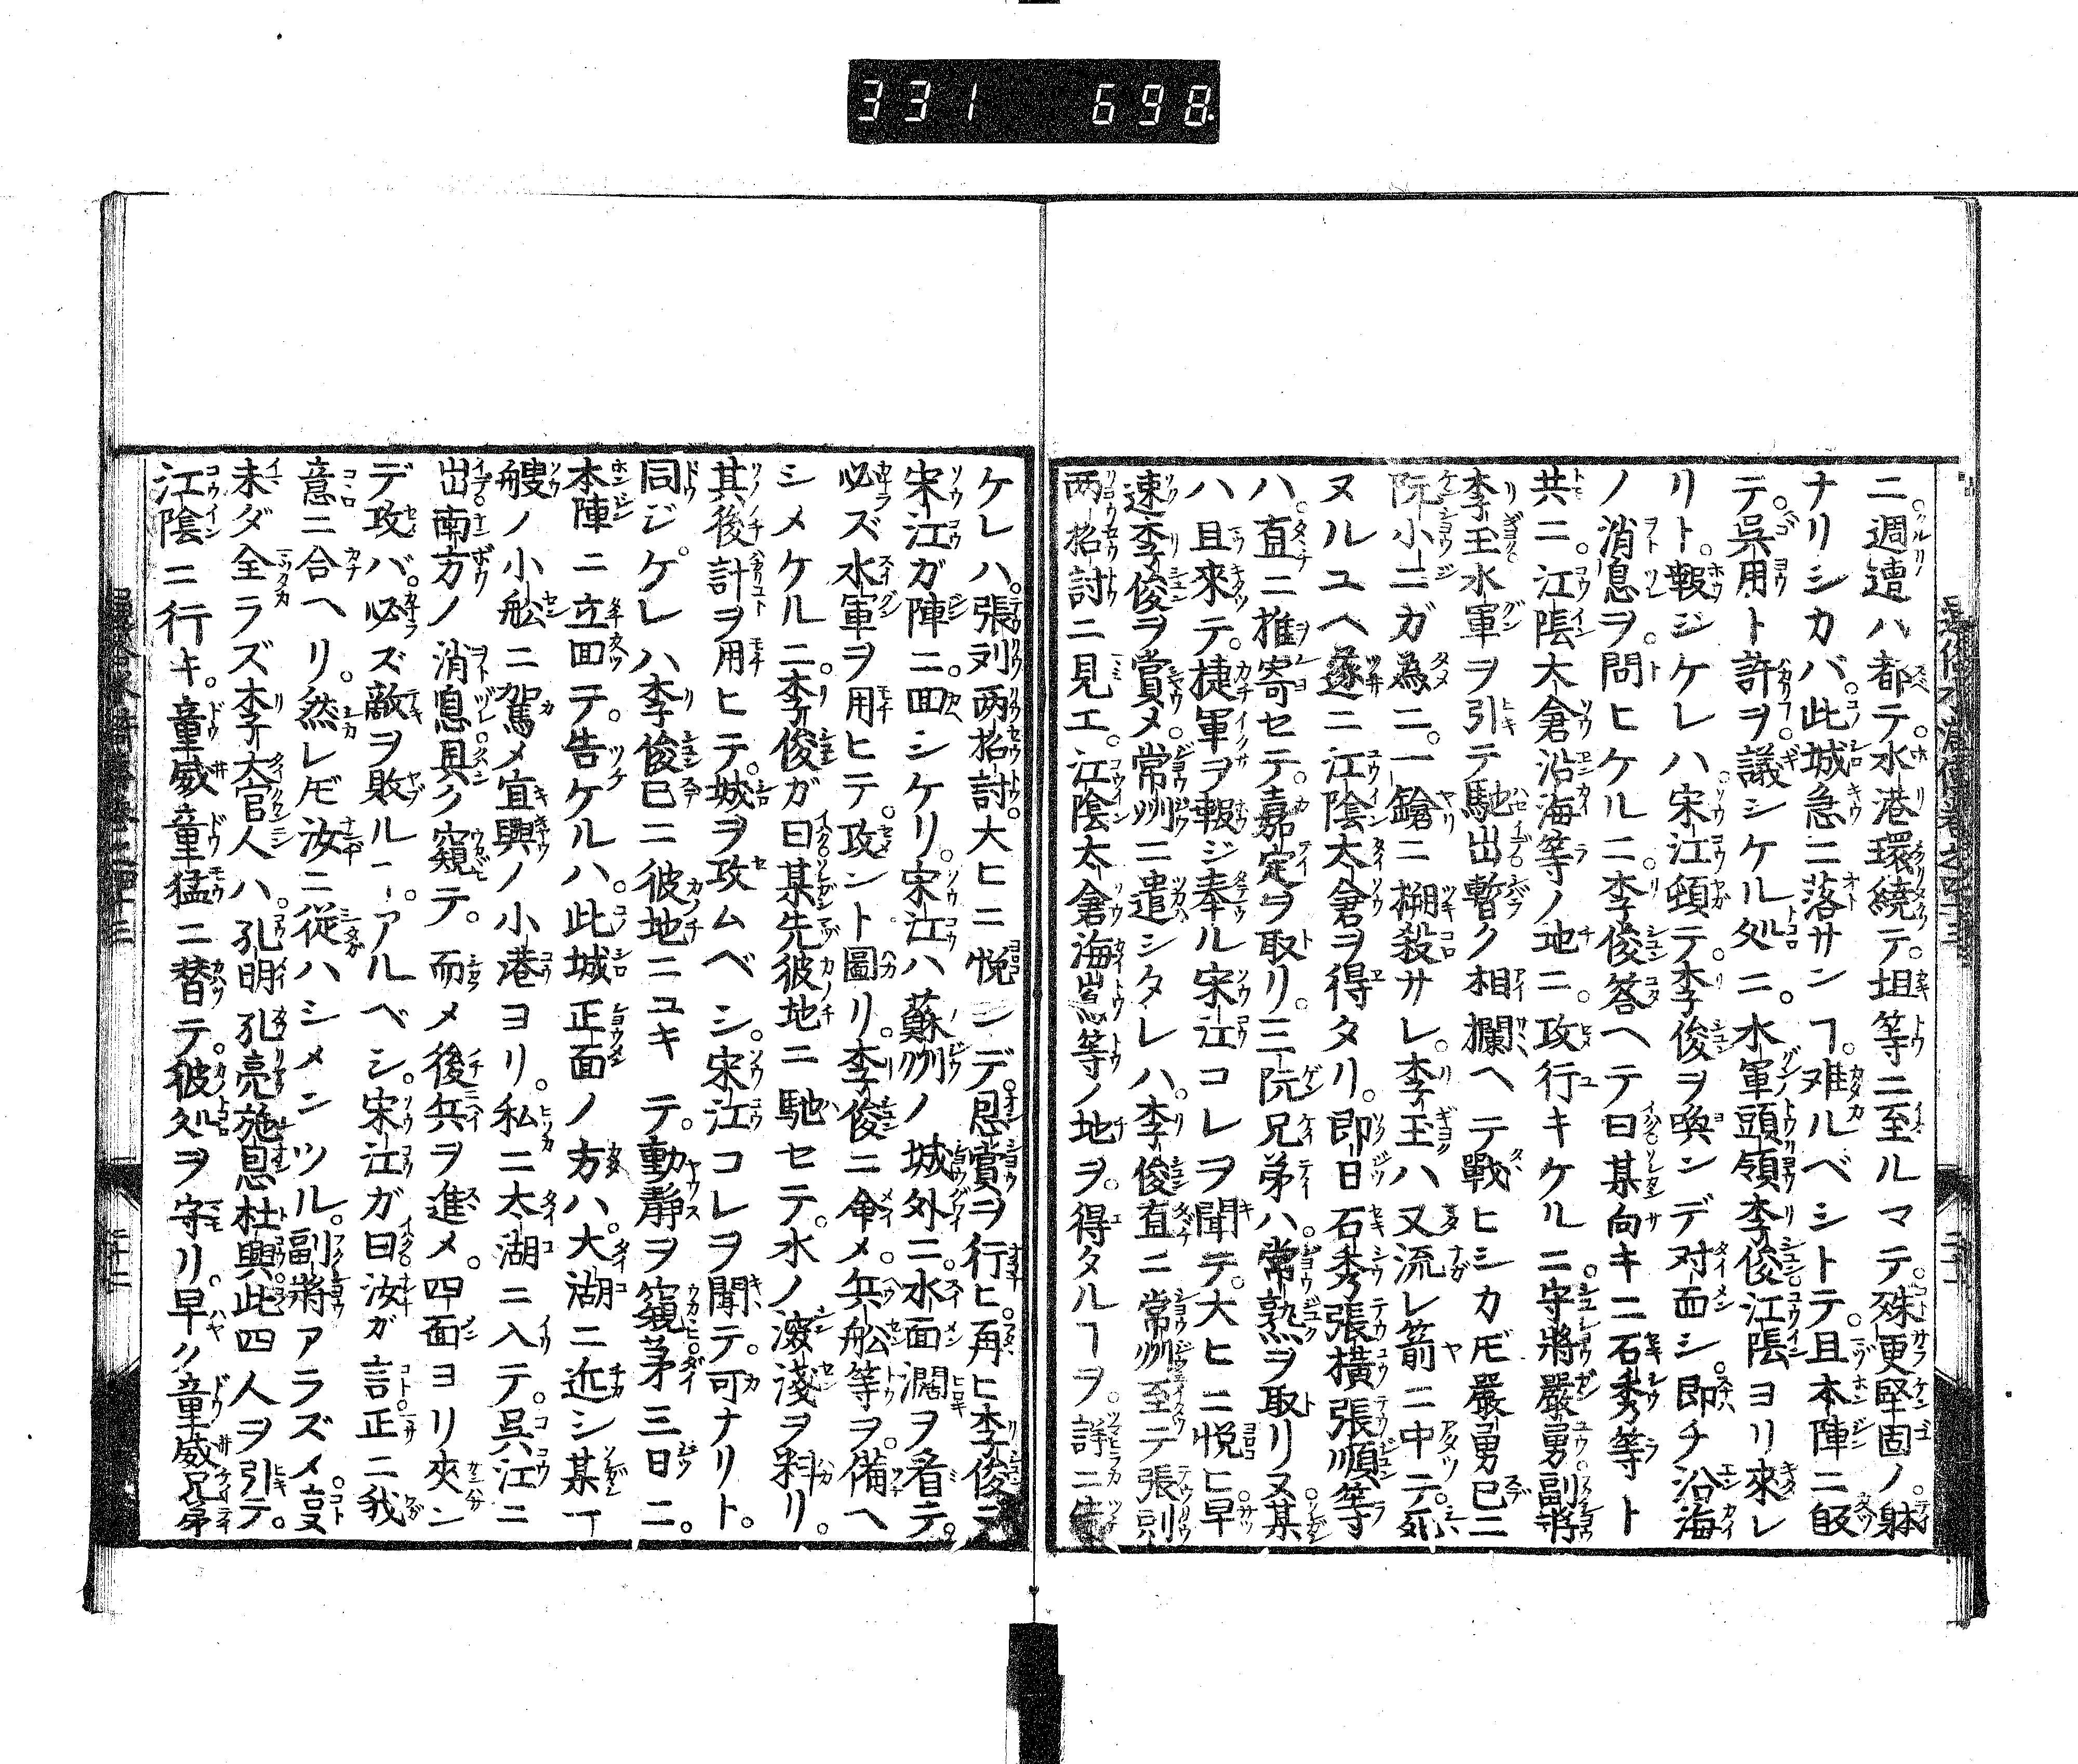 331 698
ニ週遭ハ都テ水港環繞テ坦等ニ至ルマテ殊更堅固ノ躰
ナリシカバ此城急ニ落サンヿ难ルベシトテ且本陣ニ皈
テ呉用ト許ヲ議シケル処ニ水軍頭領李俊江陰ヨリ來レ
リト報ジケレハ宋江頓テ李俊ヲ喚ンデ対面シ即チ沿海
ノ消息ヲ問ヒケルニ李俊答ヘテ曰某向キニ石秀等ト
共ニ江陰太倉沿海等ノ地ニ攻行キケルニ守將嚴勇副將
李玉水軍ヲ引テ馳出暫ク相攔ヘテ戰ヒシカ𪜈嚴勇已ニ
阮小二ガ為ニ一鎗ニ搠殺サレ李玉ハ又流レ箭ニ中テ死
ヌルユヘ遂ニ江陰太倉ヲ得タリ即日石秀張横張順等
ハ直ニ推寄セテ嘉定ヲ取リ三阮兄弟ハ常熟ヲ取リ又某
ハ且來テ捷軍ヲ報ジ奉ル宋江コレヲ聞テ大ヒニ悦ヒ早
速李俊ヲ賞メ常州ニ遣シタレハ李俊直ニ常州至テ張刘
两招討ニ見エ江陰太倉海島等ノ地ヲ得タルヿヲ詳ニ告
ケレハ張刘两招討大ヒニ悦ンデ恩賞ヲ行ヒ再ヒ李俊ニ
宋江ガ陣ニ回シケリ宋江ハ蘇州ノ城外ニ水面濶ヲ看テ
必ズ水軍ヲ用ヒテ攻ント圖リ李俊ニ命メ兵舩等ヲ備ヘ
シメケルニ李俊ガ曰某先彼地ニ馳セテ水ノ深淺ヲ料リ
其後計ヲ用ヒテ城ヲ攻ムベシ宋江コレヲ聞テ可ナリト
同ジケレハ李俊已ニ彼地ニユキテ動靜ヲ窺茅三日ニ
本陣ニ立回テ告ケルハ此城正面ノ方ハ大湖ニ近シ某一
艘ノ小舩ニ駕メ宜興ノ小港ヨリ私ニ太湖ニ入テ呉江ニ
出南方ノ消息具ク窺テ而メ後兵ヲ進メ四面ヨリ夾ン
デ攻バ必ズ敵ヲ敗ルヿアルベシ宋江ガ曰汝ガ言正ニ我
意ニ合ヘリ然レ𪜈汝ニ従ハシメンツル副將アラズメ事
未ダ全ラズ李大官人ハ孔明孔亮施恩杜興此四人ヲ引テ
江陰ニ行キ童威童猛ニ替テ彼処ヲ守リ早ク童威兄弟